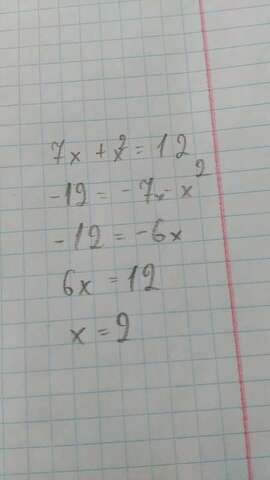 7x + x² = 12
-12 = -7x - x²
-12 = -6x
6x = 12
x = 2